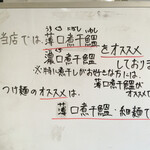 当店では、薄口煮干鰮
濃口煮干鰮
をオススメしております
※特に煮干しがお好きな方には、
薄口煮干鰮がオススメ
つけ麺のオススメは、
薄口煮干鰮・細麺で